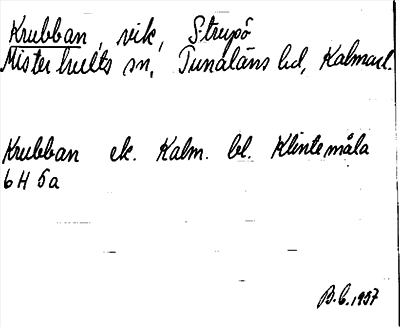 Krubban, vik, Strupö
Misterhults sn, Tunaläns hd, Kalmarl.
Krubban ek. Kalm. bl. Klintemåla
6 H 5a
B.G. 1957